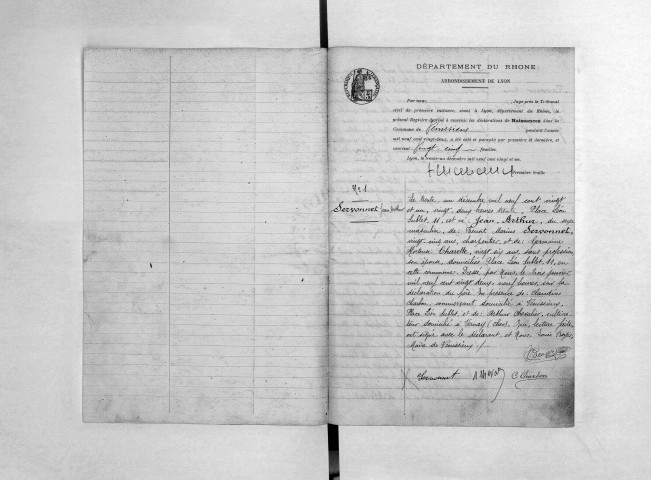 DÉPARTEMENT DU RHONE
ARRONDISSEMENT DE LYON
Par nous, Juge près le Tribunal
civil de première instance, séant à Lyon, département du Rhône, le
présent Registre destiné à recevoir les déclarations de Naissances dans la
Commune de Vénissieux pendant l'année
mil neuf cent vingt-deux, a été coté et paraphé par première et dernière, et
contient vingt cinq feuilles.
Lyon, le trente-un décembre mil neuf cent vingt et un.
Première feuille
No 1
Servonnet Jean Arthur
Le trente un décembre mil neuf cent vingt
et un, vingt deux heures trente, Place Léon
Sublet, 11, est né Jean Arthur, du sexe
masculin, de Benoit Marius Servonnet,
vingt cinq ans, charpentier et de Germaine
Hortense Charelle, vingt six ans, sans profession
son épouse, domiciliés Place Léon Sublet, 11, en
cette commune. Dressé par Nous, le trois janvier
mil neuf cent vingt deux, neuf heures, sur la
déclaration du père. En présence de: Claudius
Charbon, commerçant domicilié à Vénissieux,
Place Léon Sublet, et de: Arthur Chevalier, cultiva-
teur domicilié à (Cher). Qui, lecture faite,
ont signé avec le déclarant et Nous Louis
Maire de Vénissieux ./.
Servonnet C. Charbon